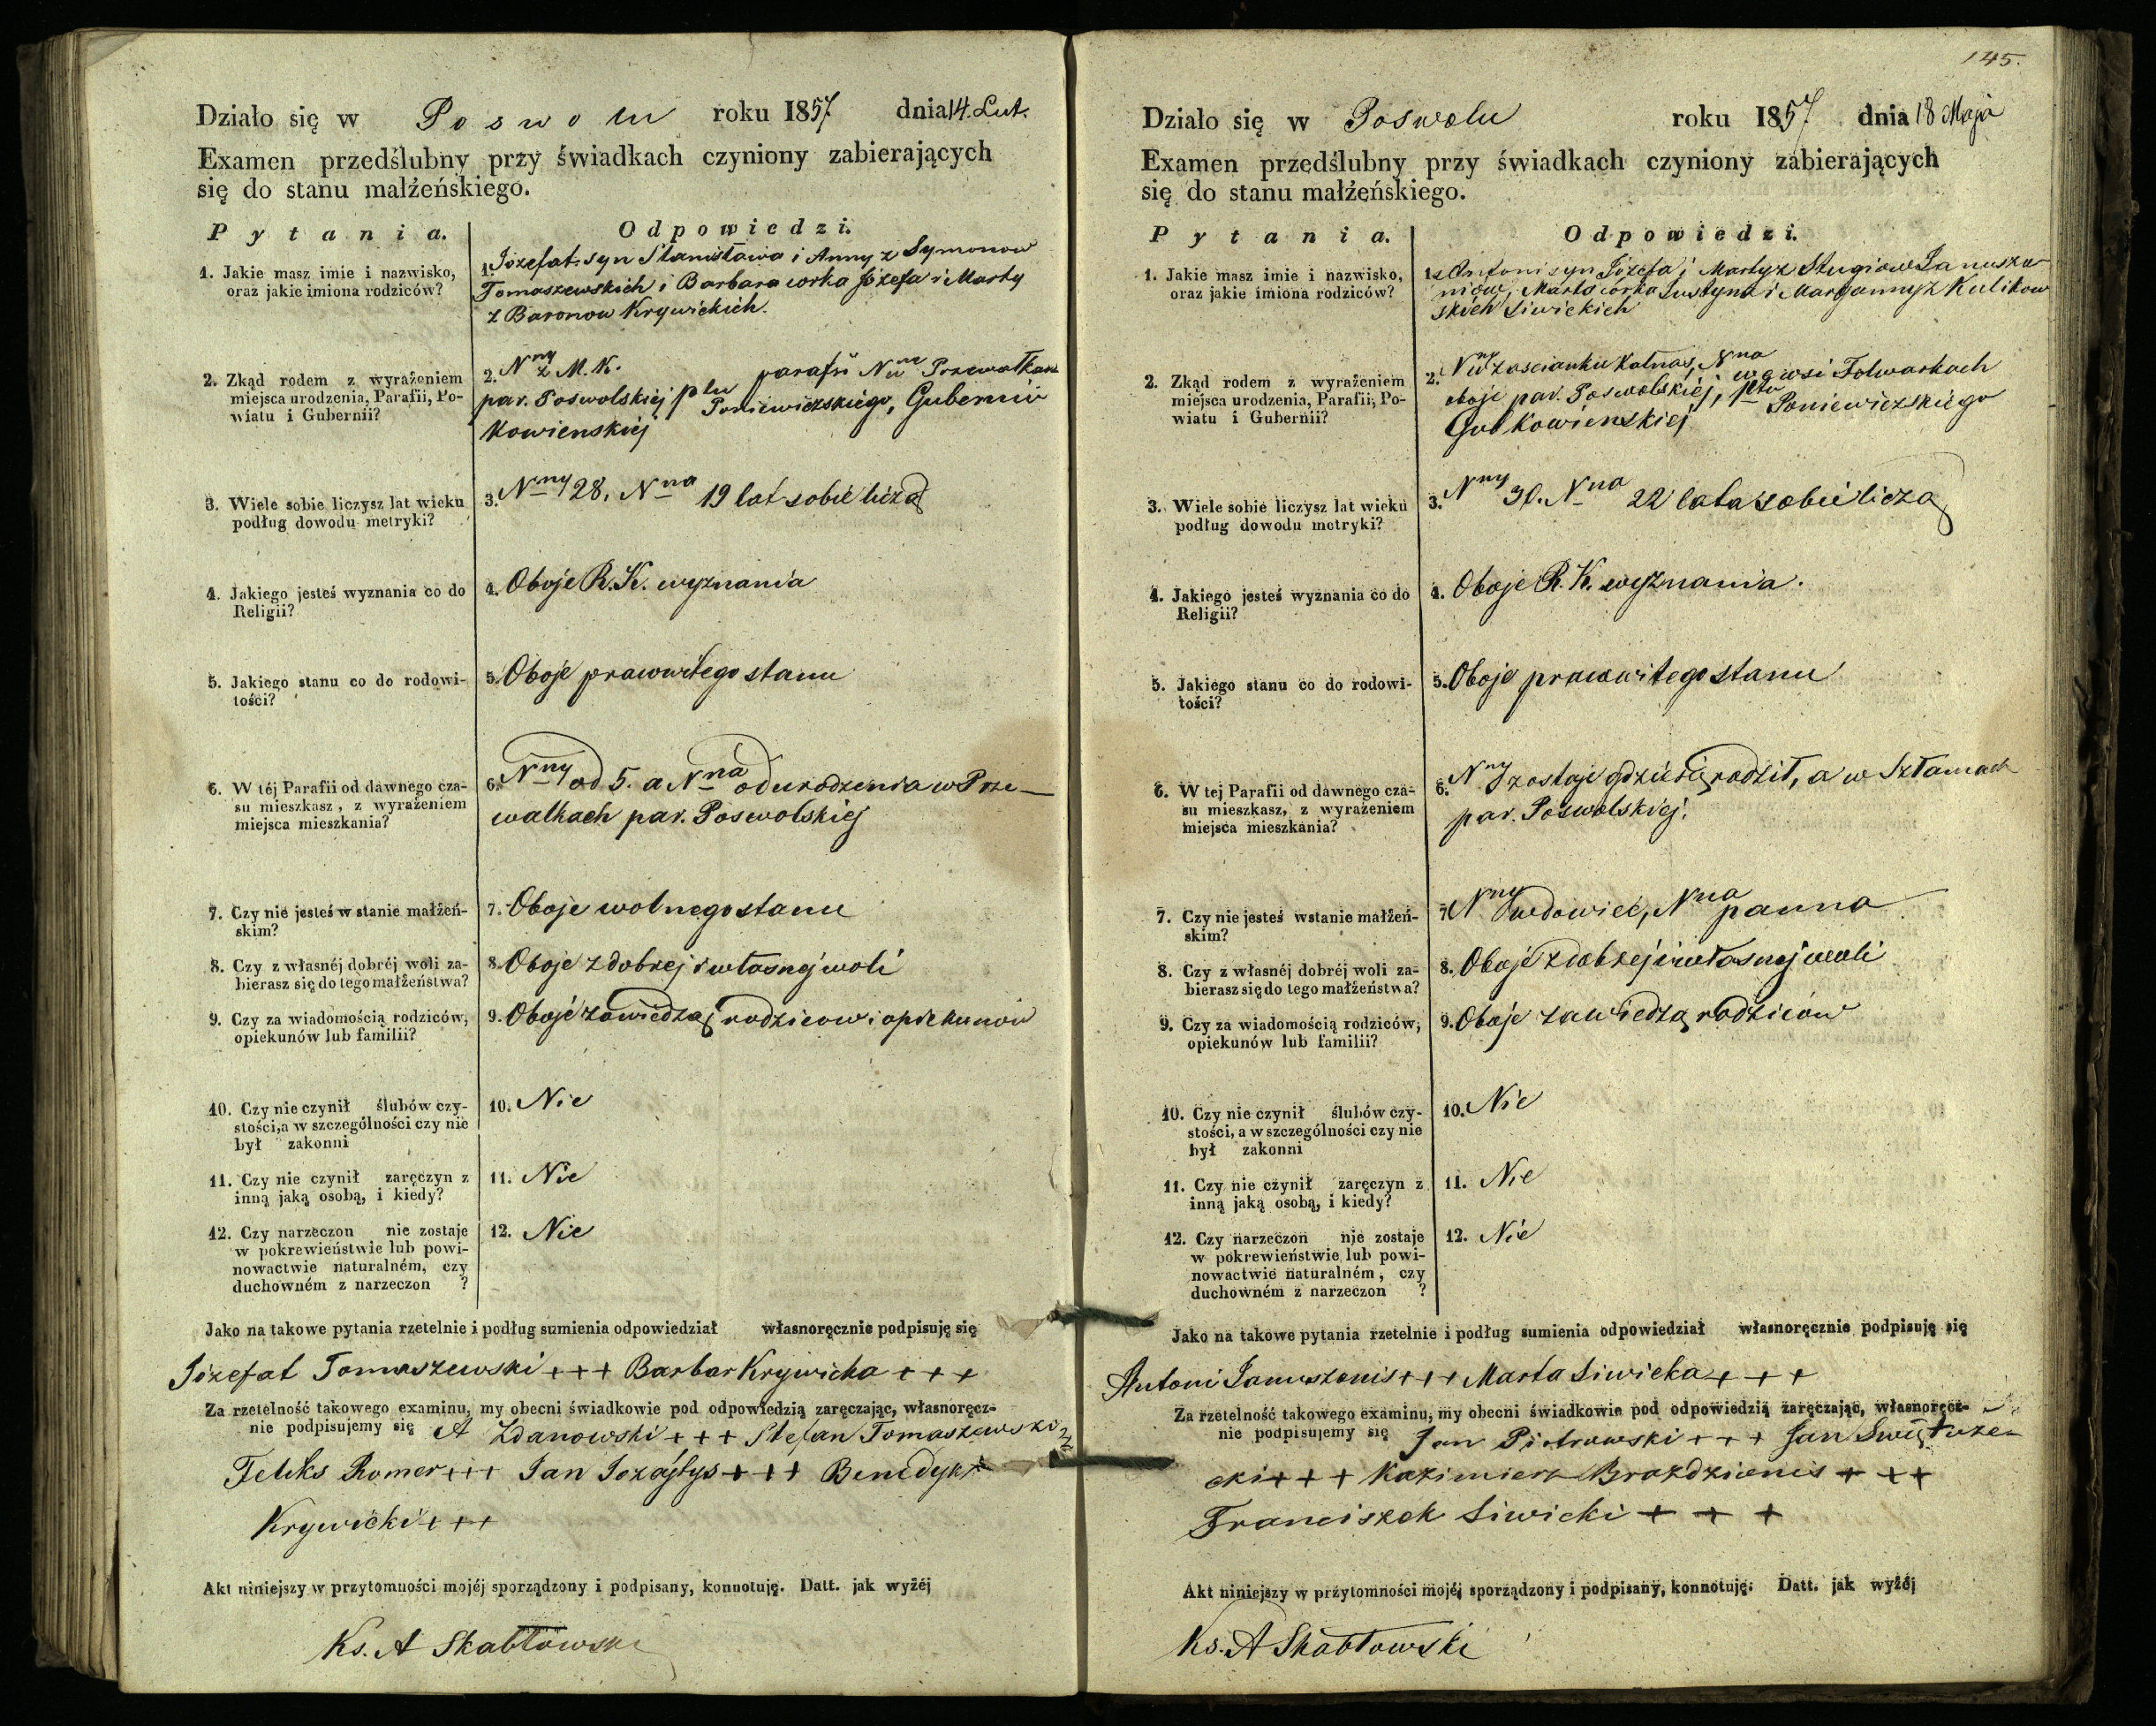 Działo się w Poswolu roku 1857 dnia 14. Lut.
Examen przedślubny przy świadkach czyniony zabierających
się do stanu małżeńskiego.
Pytania. Odpowiedzi.
1. Jakie masz imie i nazwisko,
oraz jakie imiona rodziców?
1. Józefat syn Stanisława i Anny z Symonow
Tomaszewskich i Barbara corka Józefa i Marty
z Baronow Krywickich.
2. Zkąd rodem z wyrażeniem
miejsca urodzenia, Parafii, Po-
wiatu i Gubernii?
2. Nny z M. K. parafii Nna w Przewałkach
par. Poswolskiej ptu Poniewiezskiego, Gubernii
Kowienskiej
3. Wiele sobie liczysz lat wieku
podług dowodu metryki?
3. Nny 28, Nna 19 lat sobie liczą
4. Jakiego jesteś wyznania co do
Religii?
4. Oboje R. K. wyznania
5. Jakiego stanu co do rodowi-
tości?
5. Oboje prawowitego stanu
6. W téj Parafii od dawnego cza-
su mieszkasz, z wyrażeniem
miejsca mieszkania?
6. Nny od 5. a Nna od urodzenia w Prze-
walkach par. Poswolskiej
7. Czy nie jesteś w stanie małżeń-
skim?
7. Oboje wolnego stanu
8. Czy z własnéj dobréj woli za-
bierasz się do tego małżeństwa?
8. Oboje z dobrej i własnej woli
9. Czy za wiadomością rodziców,
opiekunów lub familii?
9. Oboje za wiedzą rodzicow i opiekunow
10. Czy nie czynił ślubów czy-
stości, a w szczególności czy nie
był zakonni
10. Nie
11. Czy nie czynił zaręczyn z
inną jaką osobą, i kiedy?
11. Nie
12. Czy narzeczon nie zostaje
w pokrewieństwie lub powi-
nowactwie naturalném, czy
duchowném z narzeczon ?
12. Nie
Jako na takowe pytania rzetelnie i podług sumienia odpowiedział własnoręcznie podpisuję się
Józefat Tomaszewski +++ Barbar Krywicka +++
Za rzetelność takowego examinu, my obecni świadkowie pod odpowiedzią zaręczając, własnoręcz-
nie podpisujemy się A Zdanowski +++ Stefan Tomaszewski
Feliks Romer +++ Jan +++ Benedykt
Krywicki +++
Akt niniejszy w przytomności mojéj sporządzony i podpisany, konnotuję. Datt. jak wyżéj
Ks. A Skabłowski
145.
Działo się w Poswolu roku 1857 dnia 18 Maja
Examen przedślubny przy świadkach czyniony zabierających
się do stanu małżeńskiego.
Pytania. Odpowiedzi.
1. Jakie masz imie i nazwisko,
oraz jakie imiona rodziców?
1. Antoni syn Józefa i Marty z Stugiow Janusza-
niow, Marta corka Justyna i Maryanny z Kulikow
skich Siwickich
2. Zkąd rodem z wyrażeniem
miejsca urodzenia, Parafii, Po-
wiatu i Gubernii?
2. Nny w zascianku Kalnas, Nna we wsi Folwarkach
oboje par. Poswolskiej, ptu Poniewiezskiego
Gub Kowienskiej
3. Wiele sobie liczysz lat wieku
podług dowodu metryki?
3. Nny 30. Nna 22 lata sobie liczą
4. Jakiego jesteś wyznania co do
Religii?
4. Oboje R. K. wyznania.
5. Jakiego stanu co do rodowi-
tości?
5. Oboje prawowitego stanu
6. W tej Parafii od dawnego cza-
su mieszkasz, z wyrażeniem
miejsca mieszkania?
6. Nny zostaje gdzie się rodził, a w Sztamach
par. Poswolskiej.
7. Czy nie jesteś wstanie małżeń-
skim?
7. Nny wdowiec, Nna panna
8. Czy z własnéj dobréj woli za-
bierasz się do tego małżeństwa?
8. Oboje z dobrej i własnej woli
9. Czy za wiadomością rodziców,
opiekunów lub familii?
9. Oboje za wiedzą rodziców
10. Czy nie czynił ślubów czy-
stości, a w szczególności czy nie
był zakonni
10. Nie
11. Czy nie czynił zaręczyn z
inną jaką osobą, i kiedy?
11. Nie
12. Czy narzeczon nie zostaje
w pokrewieństwie lub powi-
nowactwie naturalném, czy
duchowném z narzeczon ?
12. Nie
Jako na takowe pytania rzetelnie i podług sumienia odpowiedział własnoręcznie podpisuję się
Antoni Januszonis +++ Marta Siwicka +++
Za rzetelność takowego examinu, my obecni świadkowie pod odpowiedzią zaręczając, własnoręcz-
nie podpisujemy się Jan Piotrowski +++ Jan Święturze-
cki +++ Kazimierz Brazdzionis +++
Franciszek Siwicki +++
Akt niniejszy w przytomności mojéj sporządzony i podpisany, konnotuję. Datt. jak wyżéj
Ks. A Skabłowski